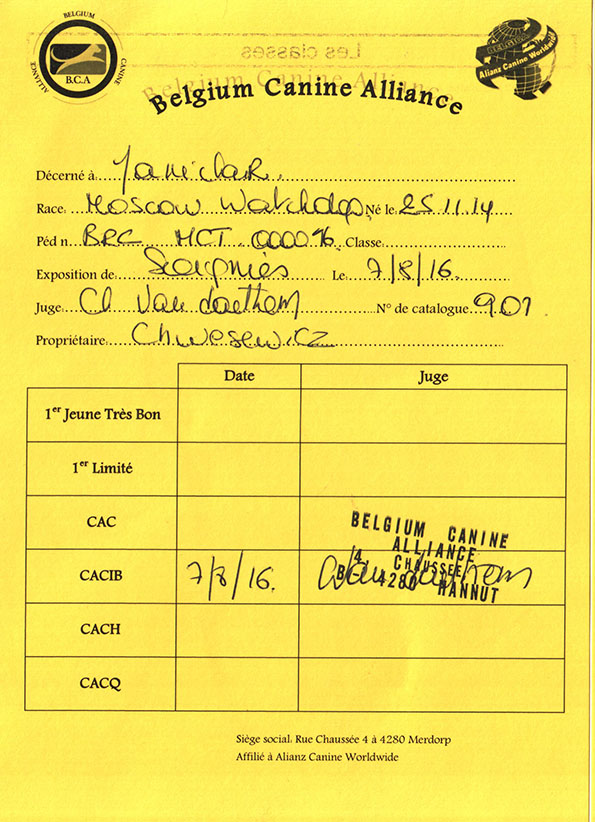 BELGIUM
B.C.A
ALLIANCE CANINE
Alianz Canine Worldwide
Les classes
Belgium Canine Alliance
Décerné à: Janichar
Race: Moscow Watchdog Né le: 25.11.14
Péd n. BRC MCT 000016 Classe
Exposition de: Le: 7/8/16.
Juge: Cl Van daethem N° de catalogue 901
Propriétaire: Chwesewicz
Date Juge
1er Jeune Très Bon
1er Limité
CAC
BELGIUM CANINE
ALLIANCE
CHAUSSEE 4
CACIB 7/8/16.
B 4280 HANNUT
CACH
CACQ
Siège social: Rue Chaussée 4 à 4280 Merdorp
Affilié à Alianz Canine Worldwide